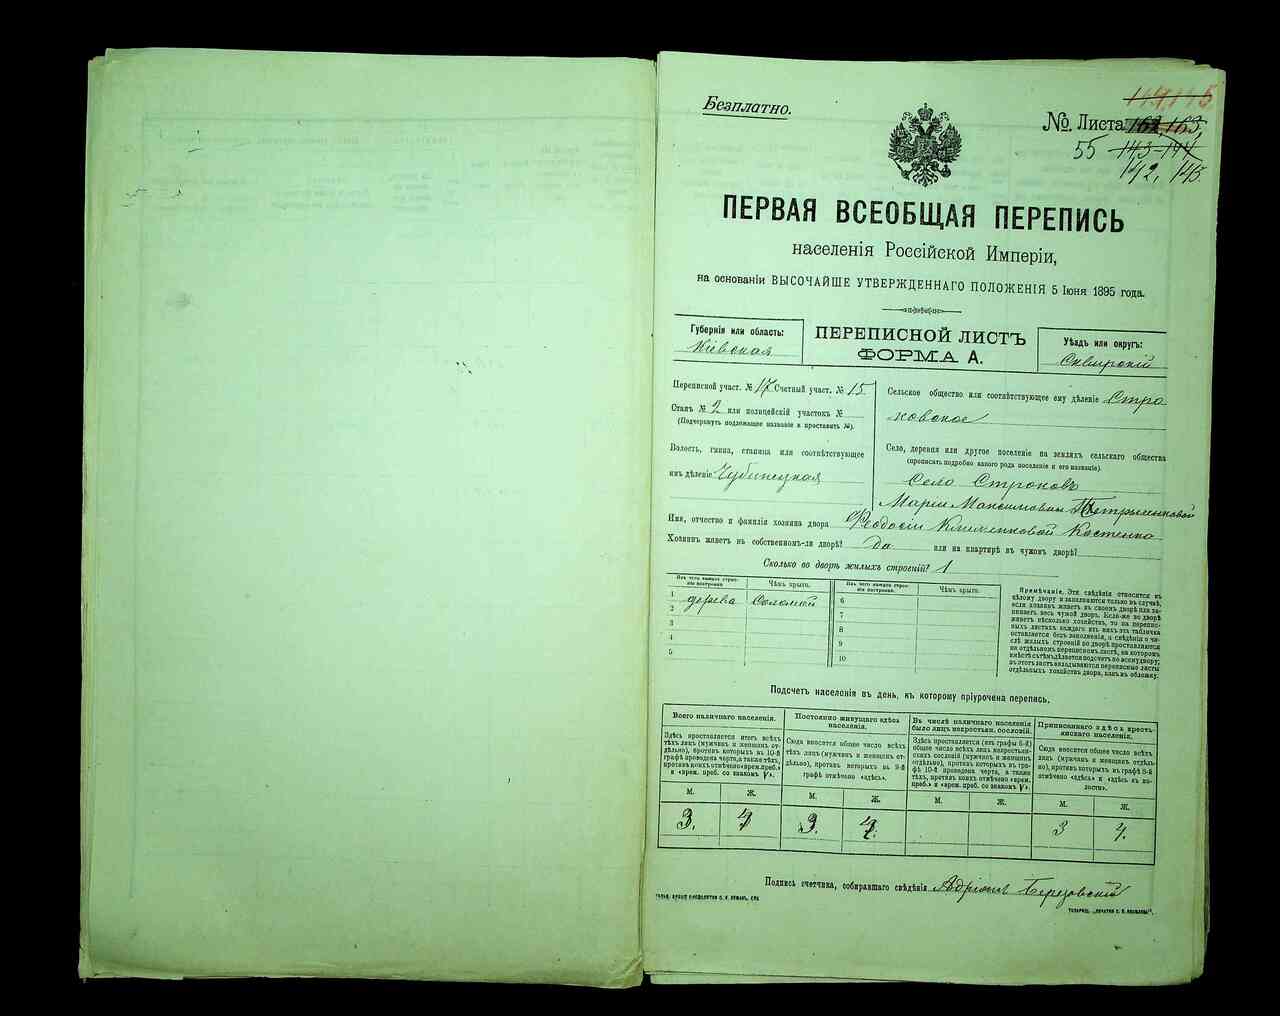 Безплатно.
114,115
№ Листа 162, 163,
55 143-144
142, 143.
ПЕРВАЯ ВСЕОБЩАЯ ПЕРЕПИСЬ
населенія Россійской Имперіи,
на основаніи ВЫСОЧАЙШЕ УТВЕРЖДЕННАГО ПОЛОЖЕНІЯ 5 Іюня 1895 года.
Губернія или область:
Кіевская
ПЕРЕПИСНОЙ ЛИСТЪ
ФОРМА А.
Уѣздъ или округъ:
Сквирскій
Переписной участ. № 17 Счетный участ. № 15
Станъ № 2 или полицейскій участокъ №
(Подчеркнуть подлежащее названіе и проставить №).
Волость, гмина, станица или соотвѣтствующее
имъ дѣленіе Чубинецкая
Сельское общество или соотвѣтствующее ему дѣленіе Стро
ковское
Село, деревня или другое поселеніе на земляхъ сельскаго общества
(прописать подробно какого рода поселеніе и его названіе).
Село Строковъ
Маріи Максимовой
Имя, отчество и фамилія хозяина двора Феодосіи Клименковой Костенко
Хозяинъ живетъ въ собственномъ-ли дворѣ? да или на квартирѣ въ чужомъ дворѣ?
Сколько во дворѣ жилыхъ строеній? 1
Изъ чего каждое строеніе построено. Чѣмъ крыто.
1 дерева соломой
2
3
4
5
Изъ чего каждое строеніе построено. Чѣмъ крыто.
6
7
8
9
10
Примѣчаніе. Эти свѣдѣнія относятся къ
цѣлому двору и заполняются только въ случаѣ,
если хозяинъ живетъ въ своемъ дворѣ или занимаетъ
весь чужой дворъ. Если-же во дворѣ
живетъ нѣсколько хозяйствъ, то на переписныхъ
листахъ каждаго изъ нихъ эта табличка
оставляется безъ заполненія, а свѣдѣнія о числѣ
жилыхъ строеній во дворѣ проставляются
на отдѣльномъ переписномъ листѣ, на которомъ
вмѣстѣ съ тѣмъ дѣлается подсчетъ по всему двору;
въ этотъ листъ вкладываются переписные листы
отдѣльныхъ хозяйствъ двора, какъ въ обложку.
Подсчетъ населенія въ день, къ которому пріурочена перепись.
Всего наличнаго населенія.
Здѣсь проставляется итогъ всѣхъ
тѣхъ лицъ (мужчинъ и женщинъ отдѣльно),
противъ которыхъ въ 10-й
графѣ проведена черта, а также тѣхъ,
противъ коихъ отмѣчено «врем. преб.»
и «врем. преб. со знакомъ V».
М. Ж.
3. 4
Постоянно живущаго здѣсь
населенія.
Сюда вносится общее число всѣхъ
тѣхъ лицъ (мужчинъ и женщинъ отдѣльно),
противъ которыхъ въ 9-й
графѣ отмѣчено «здѣсь».
М. Ж.
3. 4.
Въ числѣ наличнаго населенія
было лицъ некрестьян. сословій.
Здѣсь проставляется (изъ графы 6-й)
общее число всѣхъ лицъ некрестьянскихъ
сословій (мужчинъ и женщинъ
отдѣльно), противъ которыхъ въ графѣ
10-й проведена черта, а также
тѣхъ, противъ коихъ отмѣчено «врем.
преб.» и «врем. преб. со знакомъ V».
М. Ж.
Приписаннаго здѣсь крестьянскаго
населенія.
Сюда вносится общее число всѣхъ
лицъ (мужчинъ и женщинъ отдѣльно),
противъ которыхъ въ графѣ 8-й
отмѣчено «здѣсь» и «здѣсь въ волости».
М. Ж.
3 4.
Подпись счетчика, собиравшаго свѣдѣнія Адріанъ Березовскій